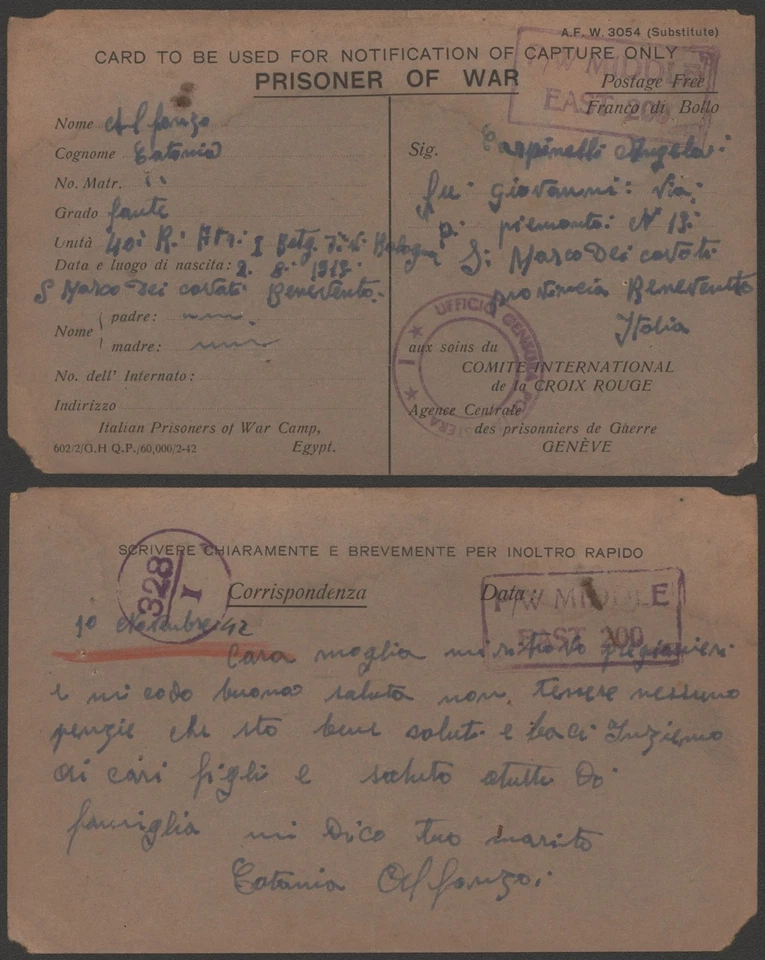 A.F.W. 3054 (Substitute)
CARD TO BE USED FOR NOTIFICATION OF CAPTURE ONLY
PRISONER OF WAR
P/W MIDDLE
EAST 200
Postage Free
Franco di Bollo
Nome Alfonzo
Cognome Catania
No. Matr.
Grado fante
Unità 40i R. I Betg. Bologna
Data e luogo di nascita: 2. 8. 1913.
S Marco Dei cavoti Benevento.
Nome
padre:
madre:
No. dell' Internato:
Indirizzo
Italian Prisoners of War Camp,
602/2/G.H Q.P./60,000/2-42 Egypt.
Sig. Carpinelli Angela:
fu: giovanni: via:
p. piemonte: N 13:
S: Marco Dei cavoti
provincia Benevento
Italia
UFFICIO CENSURA POSTA ESTERA I
aux soins du
COMITE INTERNATIONAL
de la CROIX ROUGE
Agence Centrale
des prisonniers de Guerre
GENÈVE
SCRIVERE CHIARAMENTE E BREVEMENTE PER INOLTRO RAPIDO
328
I
Corrispondenza Data:
P/W MIDDLE
EAST 200
10 Novembre 42
Cara moglia mi ritrovo
e mi codo buona saluta non tenere nessuno
penzie che sto bene saluti e baci Inziemo
ai cari figli e saluto atutti Di
famiglia mi Dico tuo marito
Catania Alfonzo: